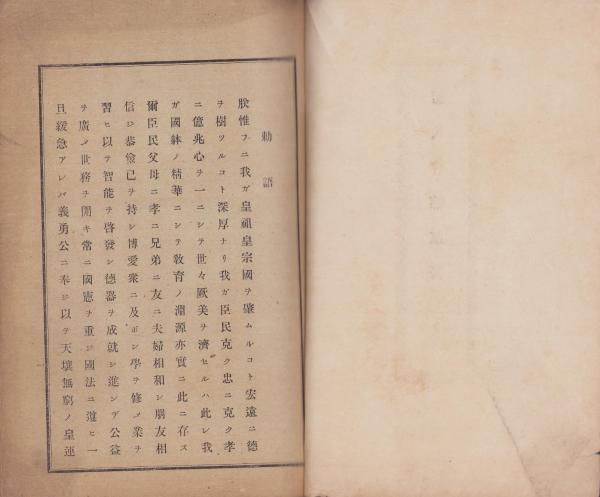 勅語
朕惟フニ我ガ皇祖皇宗國ヲ肇ムルコト宏遠ニ德
ヲ樹ツルコト深厚ナリ我ガ臣民克ク忠ニ克ク孝
ニ億兆心ヲ一ニシテ世々厥美ヲ濟セルハ此レ我
ガ國體ノ精華ニシテ敎育ノ淵源亦實ニ此ニ存ス
爾臣民父母ニ孝ニ兄弟ニ友ニ夫婦相和シ朋友相
信ジ恭儉己ヲ持シ博愛衆ニ及ボシ學ヲ修メ業ヲ
習ヒ以テ智能ヲ啓發シ德器ヲ成就シ進ンデ公益
ヲ廣メ世務ヲ開キ常ニ國憲ヲ重ジ國法ニ遵ヒ一
旦緩急アレバ義勇公ニ奉ジ以テ天壤無窮ノ皇運